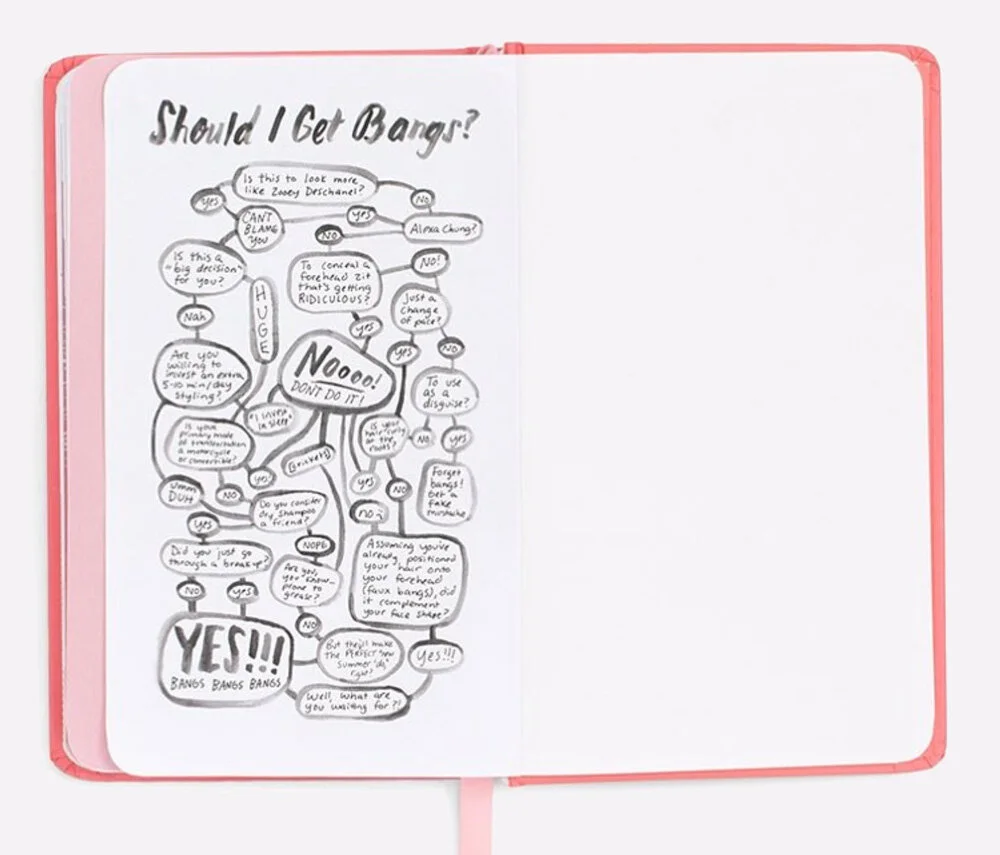 Should I Get Bangs?
Is this to look more
like Zooey Deschanel?
Yes
No
CANT
BLAME
YOU
yes
Alexa Chung?
No
Is this a
"big decision"
for you?
To conceal a
forehead zit
that's getting
RIDICULOUS?
No!
HUGE
Just a
change
of pace?
Nah
yes
Yes
No
Noooo!
DONT DO IT!
Are you
willing to
invest an extra
5-10 min/day
styling?
To use
as a
disguise?
"I invest
in sleep"
Is your
primary mode
of transportation
a motorcycle
or convertible?
Is your
hair curly
at the
roots?
No
yes
[crickets]
yes
yes
No
Forget
bangs!
Get a
fake
mustache.
Umm
DUH
No
Do you consider
dry shampoo
a friend?
no :(
Yes
NOPE
Did you just go
through a breakup?
Are you,
you know...
prone to
grease?
Assuming you've
already positioned
your hair onto
your forehead
(faux bangs), did
it complement
your face shape?
No
yes
No
YES!!!
BANGS BANGS BANGS
But they'll make
the PERFECT new
summer 'do,
right?
Yes!!!
Well, what are
you waiting for?!